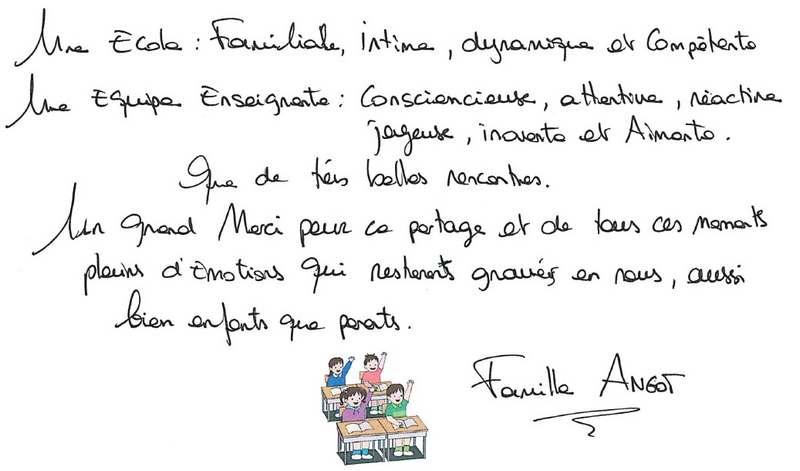 Une Ecole : Familiale, intime, dynamique et Compétente
Une Equipe Enseignante : Consciencieuse, attentive, réactive
joyeuse, inovente et Aimante.
Que de très belles rencontres.
Un grand Merci pour ce partage et de tous ces moments
pleins d'Emotions qui resteronts gravés en nous, aussi
bien enfants que parents.
Famille ANGOT